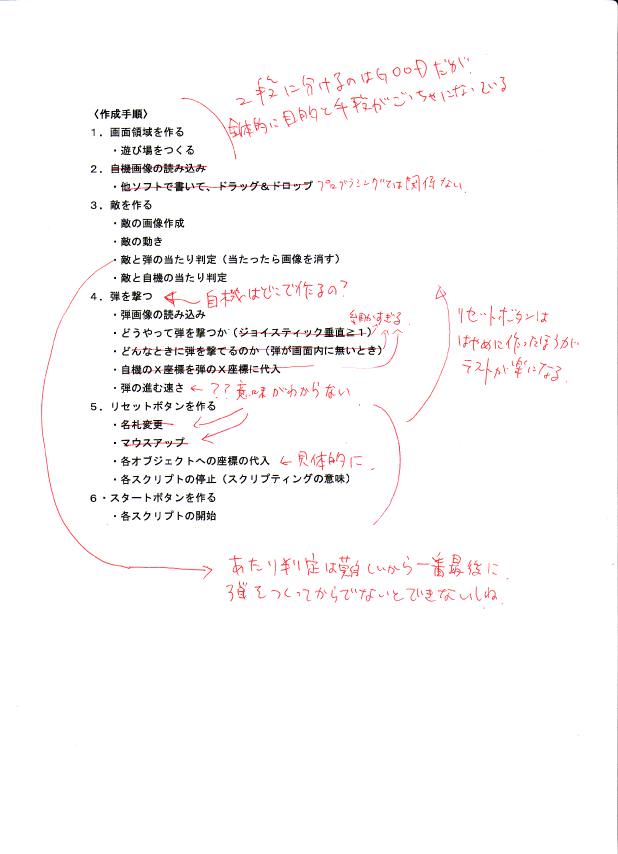 2段に分けるのはGOODだが、
全体的に目的と手段がごっちゃになってる
〈作成手順〉
1．画面領域を作る
・遊び場をつくる
2．自機画像の読み込み
・他ソフトで書いて、ドラッグ＆ドロップ プログラミングでは関係ない
3．敵を作る
・敵の画像作成
・敵の動き
・敵と弾の当たり判定（当たったら画像を消す）
・敵と自機の当たり判定
4．弾を撃つ ←自機はどこで作るの?
・弾画像の読み込み
細かすぎる
・どうやって弾を撃つか（ジョイスティック垂直≧1）
・どんなときに弾を撃てるのか（弾が画面内に無いとき）
・自機のX座標を弾のX座標に代入
・弾の進む速さ ←??意味がわからない
リセットボタンは
はやめに作ったほうが
テストが楽になる
5．リセットボタンを作る
・名札変更
・マウスアップ
・各オブジェクトへの座標の代入 ←具体的に
・各スクリプトの停止（スクリプティングの意味）
6・スタートボタンを作る
・各スクリプトの開始
あたり判定は難しいから一番最後に
弾をつくってからでないとできないしね